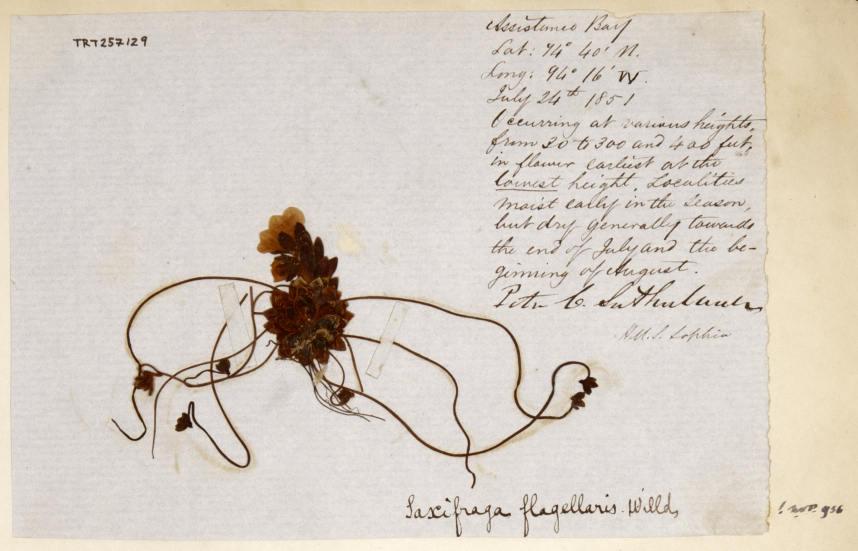 TRT257129
Assistance Bay
Lat: 74° 40' N.
Long: 94° 16' W.
July 24th 1851
Occurring at various heights,
from 30 to 300 and 400 feet,
in flower earliest at the
lowest height. Localities
moist early in the season,
but dry generally towards
the end of July and the be-
ginning of August.
Peter C. Sutherland
H.M.S. Sophia
Saxifraga flagellaris. Willd.